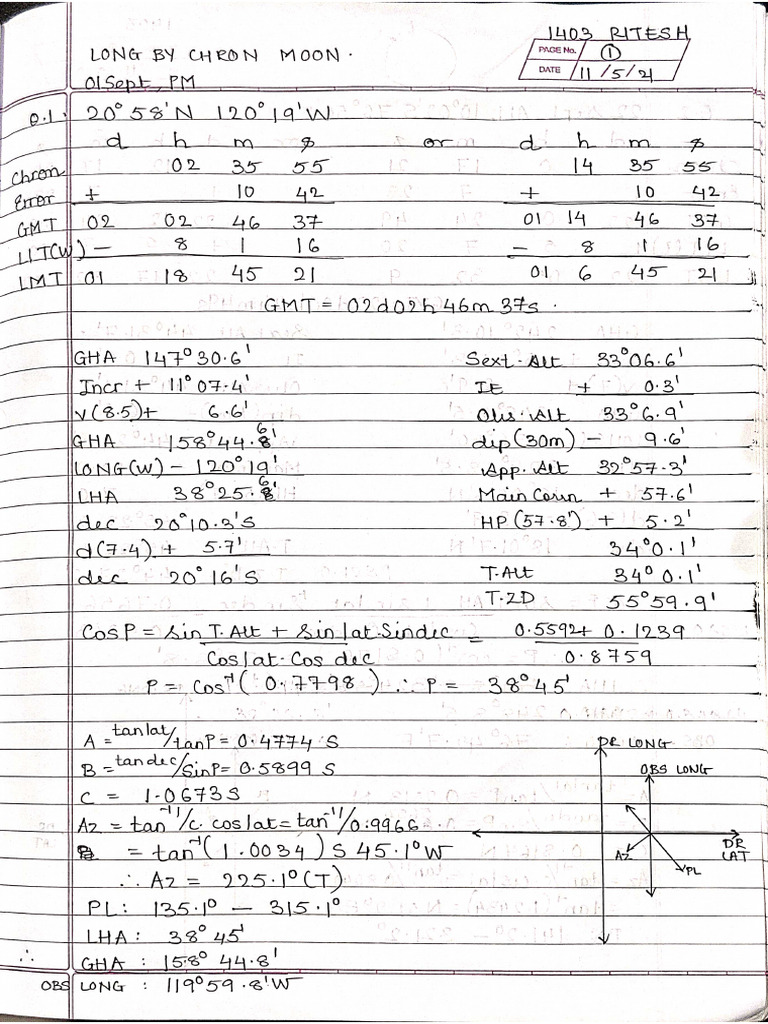 1403 RITESH
PAGE No. 1
LONG BY CHRON MOON.
DATE 11/5/21
01 Sept, PM
Q.1. 20°58'N 120°19'W
d h m s or d h m s
Chron 02 35 55 14 35 55
Error + 10 42 + 10 42
GMT 02 02 46 37 01 14 46 37
LIT(W) - 8 1 16 - 8 1 16
LMT 01 18 45 21 01 6 45 21
GMT = 02d 02h 46m 37s.
GHA 147°30.6' Sext. Alt 33°06.6'
Incr + 11°07.4' IE + 0.3'
v(8.5)+ 6.6' Obs. Alt 33°6.9'
GHA 158°44.6' dip(30m) - 9.6'
LONG(W) - 120°19' App. Alt 32°57.3'
LHA 38°25.6' Main Corrn + 57.6'
dec 20°10.3'S HP(57.8') + 5.2'
d(7.4) + 5.7' 34°0.1'
dec 20°16'S T.Alt 34°0.1'
T.ZD 55°59.9'
Cos P = Sin T.Alt + Sin lat. Sin dec = 0.5592 + 0.1239
Cos lat. Cos dec 0.8759
P = Cos⁻¹(0.7798) ∴ P = 38°45'
A = tan lat/tan P = 0.4774 S DR LONG
B = tan dec/Sin P = 0.5899 S OBS LONG
C = 1.0673 S
Az = tan⁻¹/c. cos lat = tan⁻¹/0.9966
= tan⁻¹(1.0034) S 45.1°W Az DR LAT
∴ Az = 225.1°(T) PL
PL: 135.1° — 315.1°
LHA: 38°45'
∴ GHA : 158°44.8'
OBS LONG : 119°59.8'W